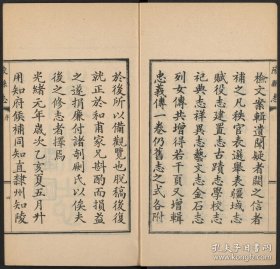 檢文案輯遺聞疑者闕之信者
補之凡秩官表選舉表疆域志
賦役志建置志古蹟志學校志
祀典志祥異志藝文志金石志
列女傳共增得若干頁又增輯
忠義傳一卷仍舊志之式各附
於後所以備觀覽也脫稿後復
就正於甫家兄斟酌而損益
之遂捐廉付諸剞劂氏以俟夫
後之修志者擇焉
光緒元年歲次乙亥夏五月升
用知府候補同知直隸州知陵
孔夫子旧书网